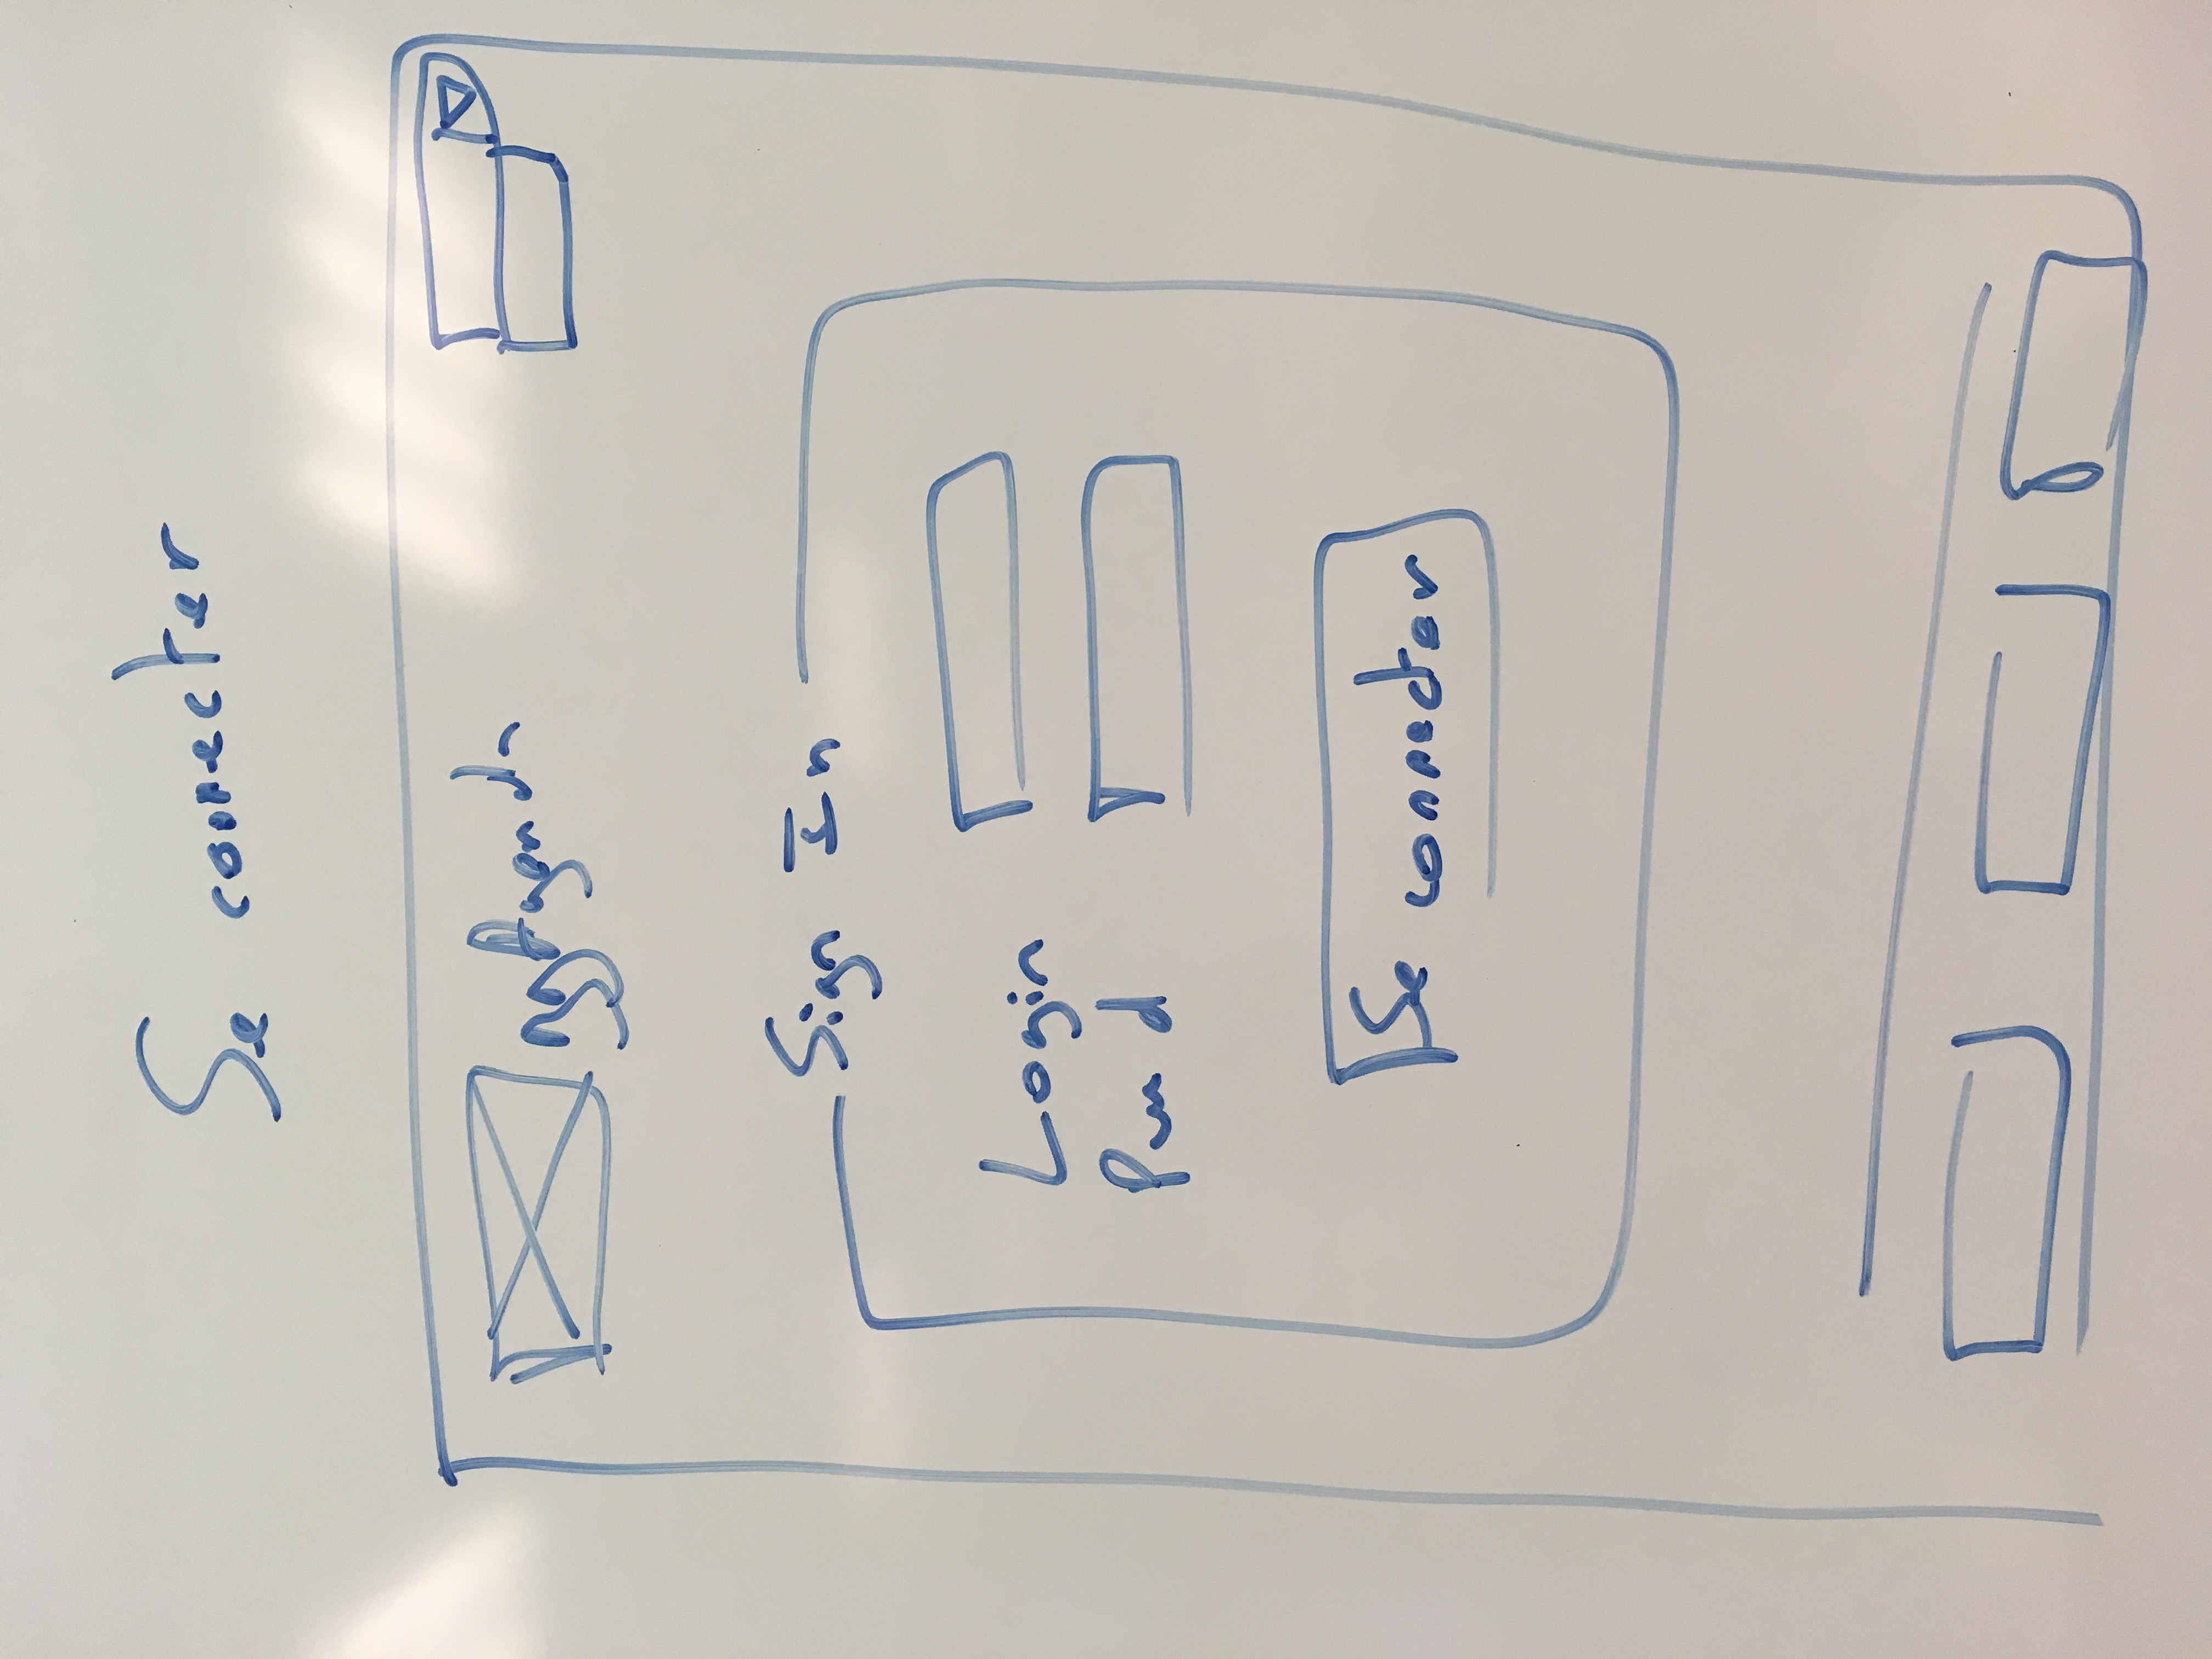 Se connecter
myAgenda
Sign In
Login
Pwd
Se connecter